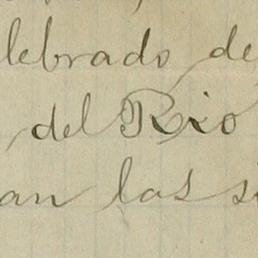 lebrado de
del Rio
an las si